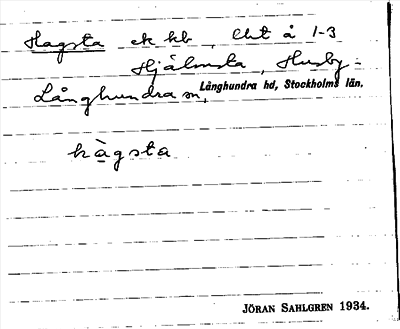 Hagsta ek hb, Ebl å 1-3
Hjälmsta, Husby-
Långhundra sn, Långhundra hd, Stockholms län.
hàgsta
JÖRAN SAHLGREN 1934.